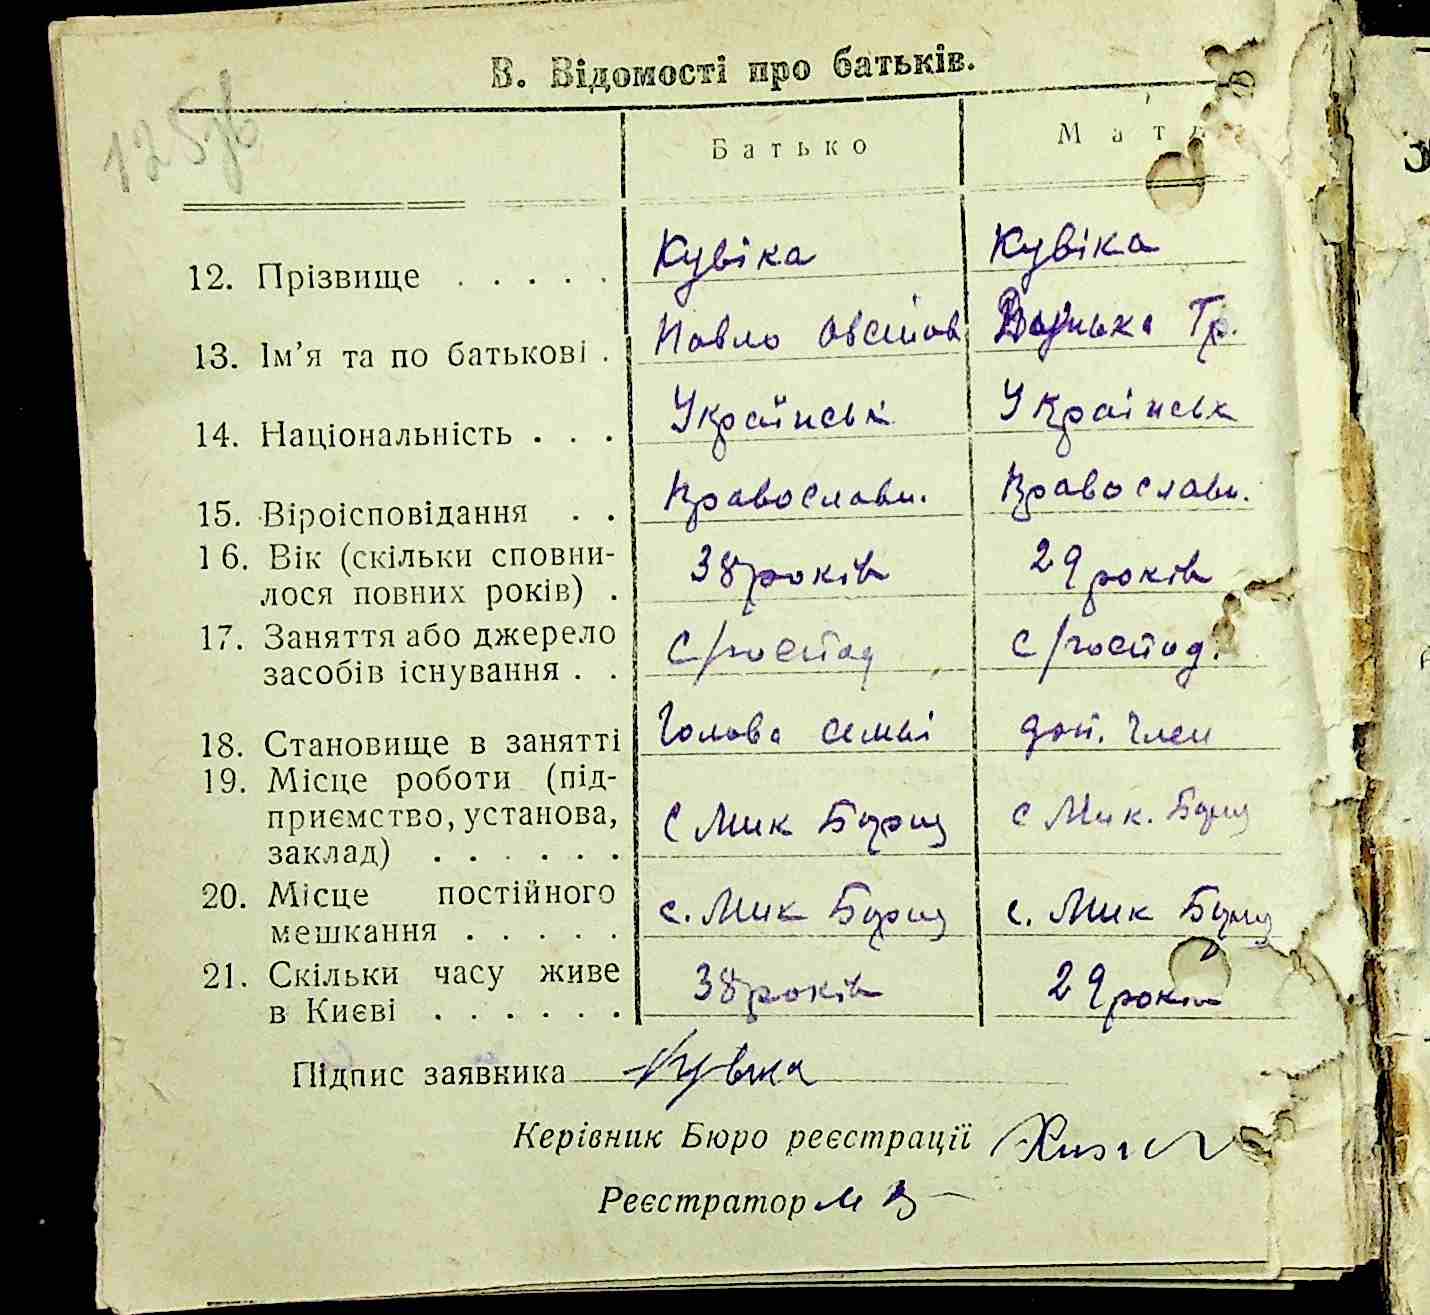 В. Відомості про батьків.
125
Батько Мати
12. Прізвище . . . . . Кувіка Кувіка
13. Ім'я та по батькові . Павло Овстов Тр.
14. Національність . . . Українськ Українськ
15. Віроісповідання . . Православн. Православн.
16. Вік (скільки сповни-
лося повних років) . 38 років 29 років
17. Заняття або джерело
засобів існування . . С/господ С/господ.
18. Становище в занятті Голова семьі доп. член
19. Місце роботи (під-
приємство, установа,
заклад) . . . . . . С Мик Борщ С Мик. Борщ
20. Місце постійного
мешкання . . . . . с. Мик Борщ с. Мик Борщ
21. Скільки часу живе
в Києві . . . . . . 38 років 29 років
Підпис заявника Кувіка
Керівник Бюро реєстрації
Реєстратор